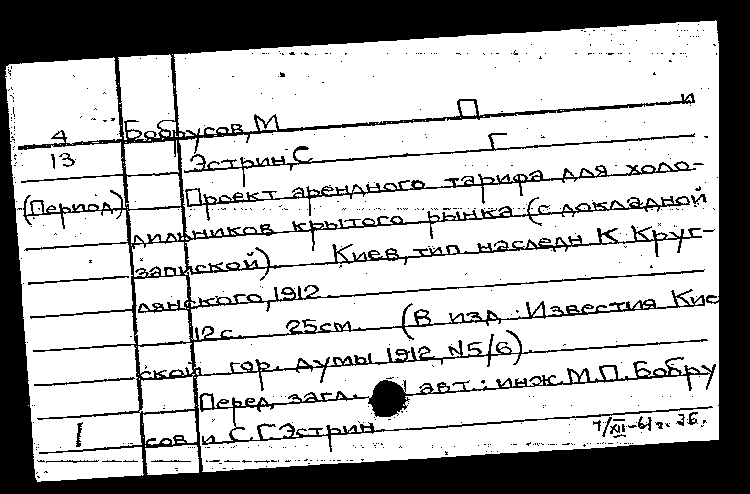 4 Бобрусов, М П и
13 Эстрин, С Г
(Период) Проект арендного тарифа для холо-
дильников крытого рынка (с докладной
запиской). Киев, тип. наследн К. Круг-
лянского, 1912.
12 с. 25 см. (В изд.: Известия Кие
ской гор. думы 1912, N 5/6).
Перед загл. авт.: инж. М.П. Бобру
1 сов и С.Г. Эстрин